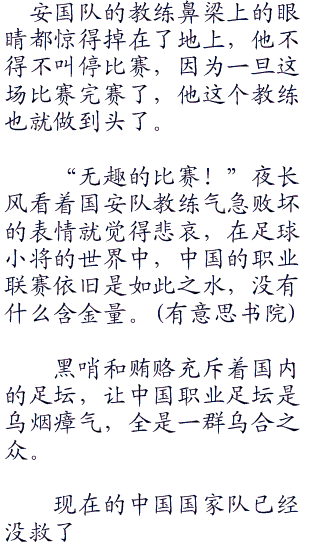 安国队的教练鼻梁上的眼
睛都惊得掉在了地上，他不
得不叫停比赛，因为一旦这
场比赛完赛了，他这个教练
也就做到头了。
“无趣的比赛！”夜长
风看着国安队教练气急败坏
的表情就觉得悲哀，在足球
小将的世界中，中国的职业
联赛依旧是如此之水，没有
什么含金量。(有意思书院)
黑哨和贿赂充斥着国内
的足坛，让中国职业足坛是
乌烟瘴气，全是一群乌合之
众。
现在的中国国家队已经
没救了